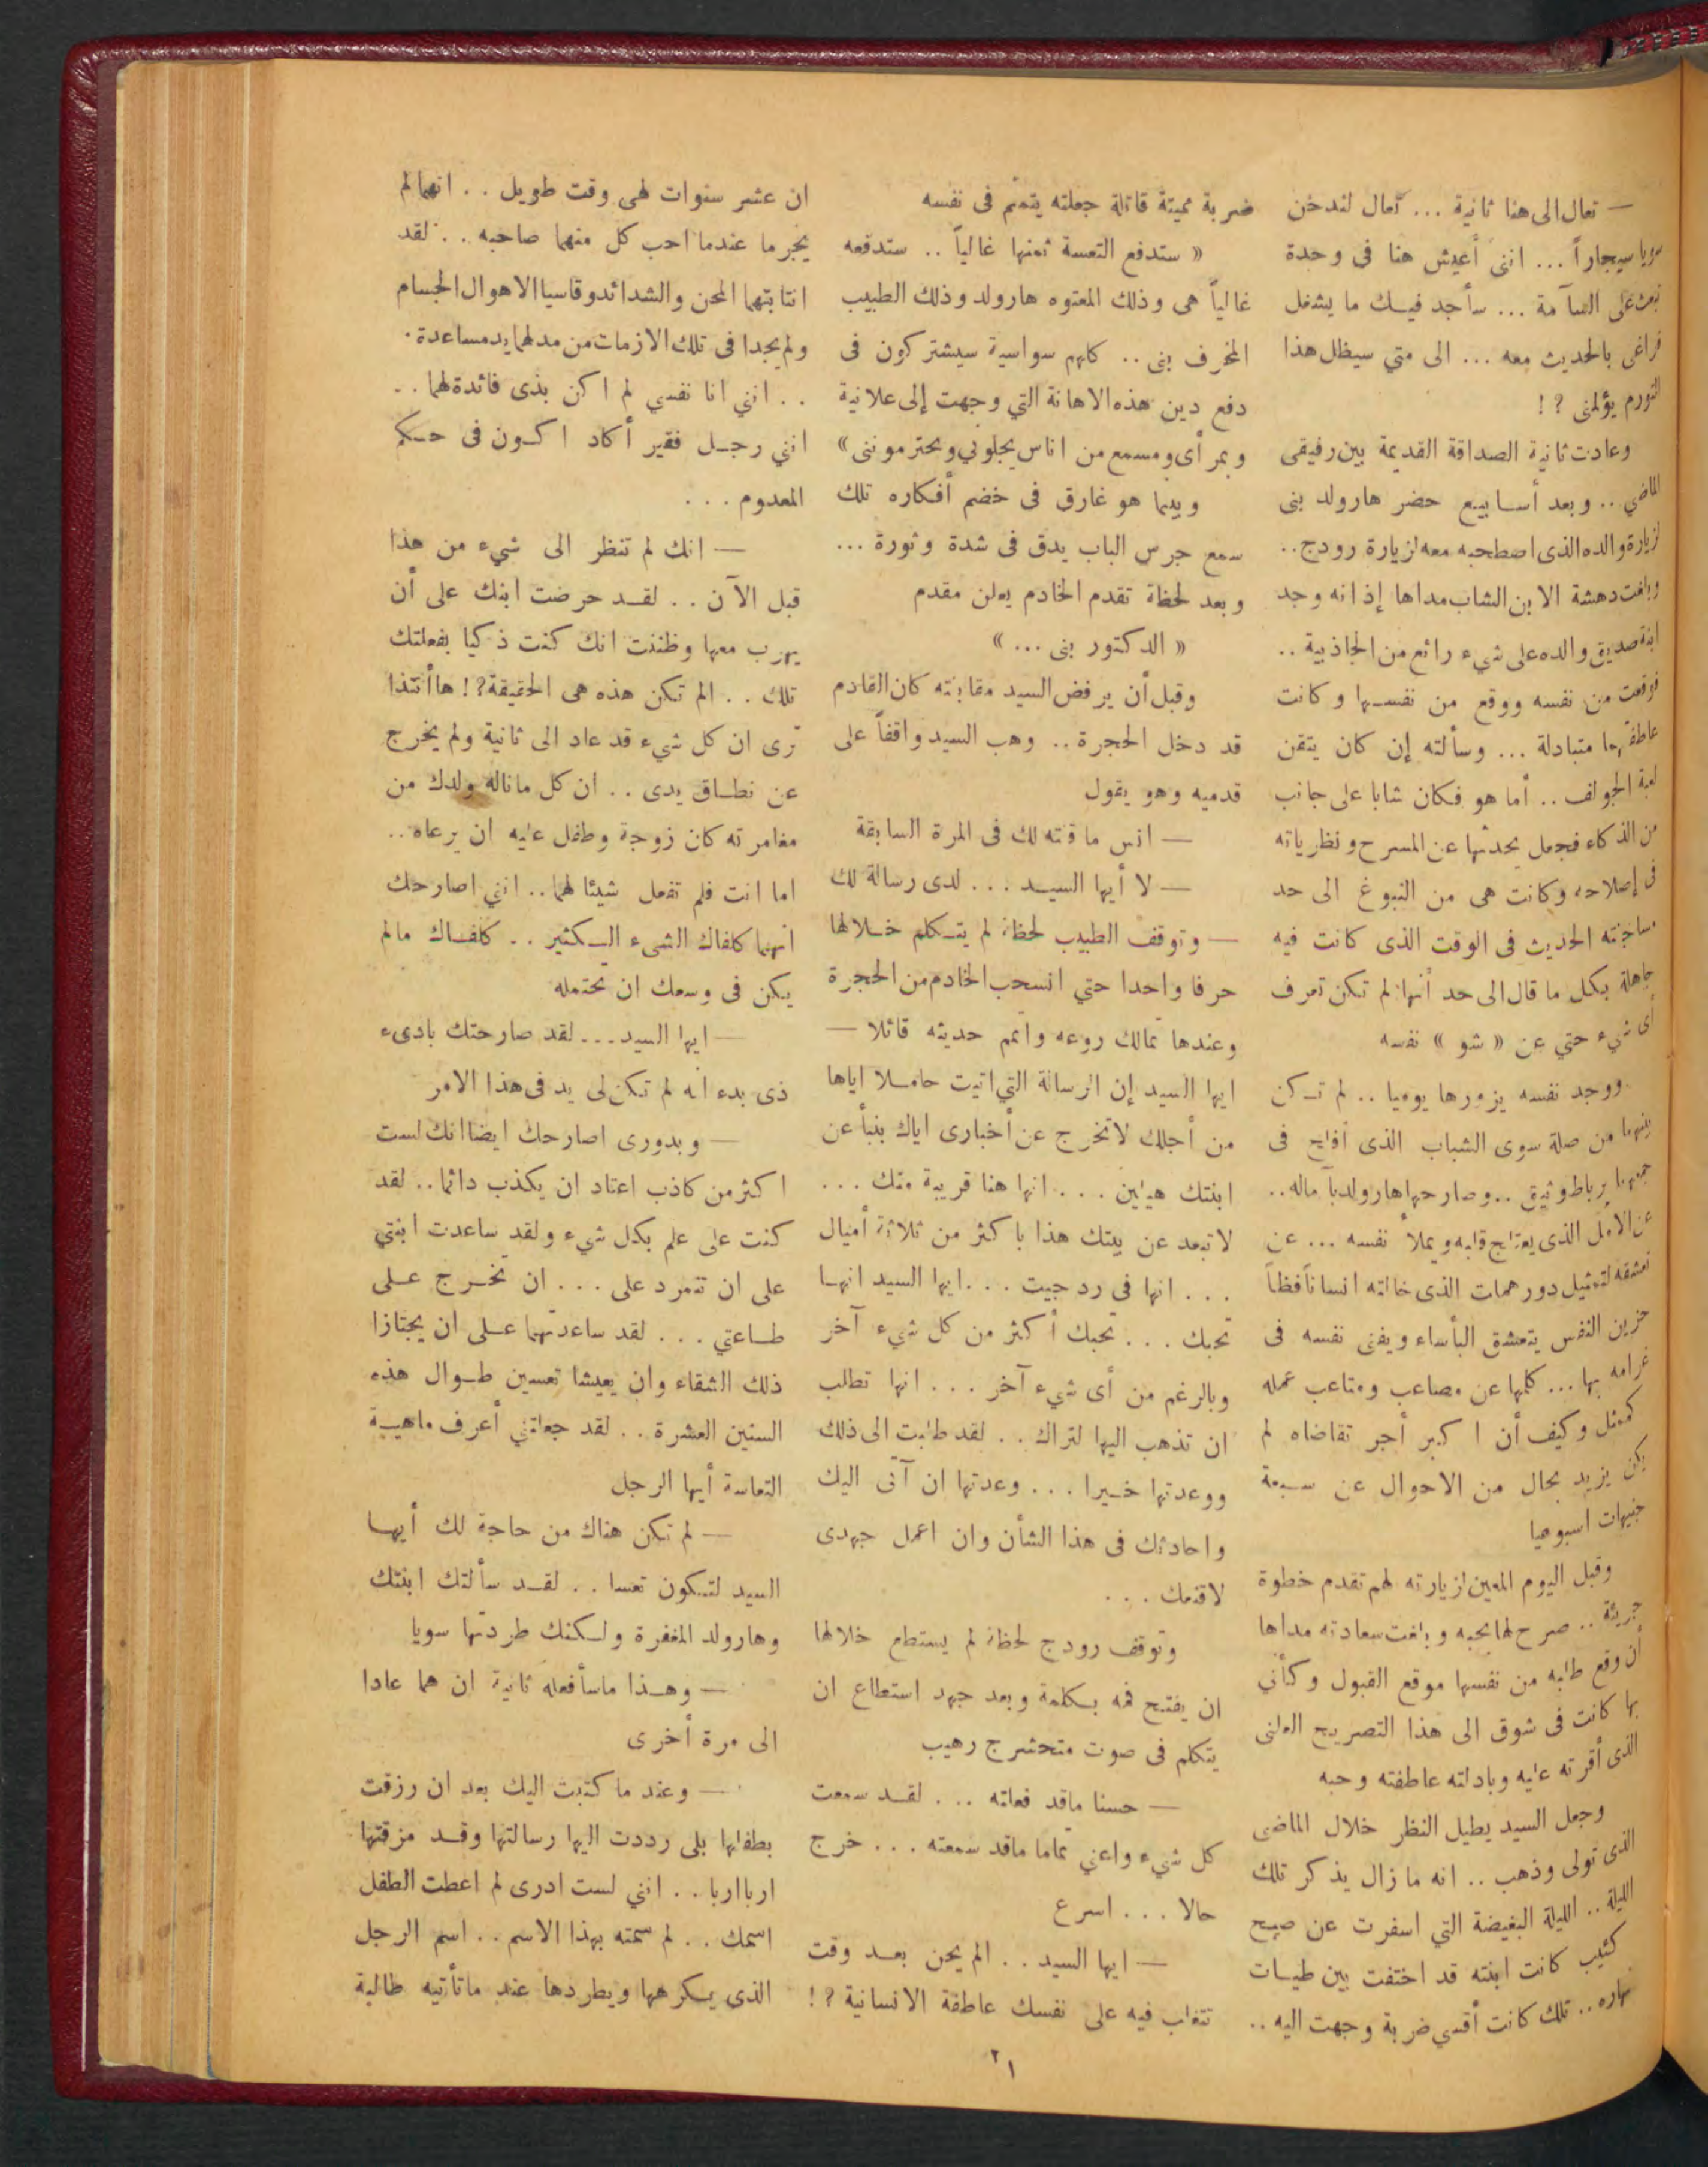 — تعال الى هنا ثانية ... تعال لندخن
سويا سيجاراً ... انني أعيش هنا في وحدة
تبعث على السآمة ... سأجد فيك ما يشغل
فراغى بالحديث معه ... الى متي سيظل هذا
التورم يؤلمنى ؟ !
وعادت ثانية الصداقة القديمة بين رفيقى
الماضي .. وبعد أسابيع حضر هارولد بنى
لزيارة والده الذى اصطحبه معه لزيارة رودج..
وبلغت دهشة الابن الشاب مداها إذ انه وجد
ابنة صديق والده على شيء رائع من الجاذبية ..
فوقعت من نفسه ووقع من نفسها وكانت
عاطفتهما متبادلة ... وسألته إن كان يتقن
لعبة الجولف .. أما هو فكان شابا على جانب
من الذكاء فجعل يحدثها عن المسرح ونظرياته
فى إصلاحه وكانت هى من النبوغ الى حد
مساجلته الحديث فى الوقت الذى كانت فيه
جاهلة بكل ما قال الى حد أنها لم تكن تعرف
أى شيء حتي عن « شو » نفسه
ووجد نفسه يزورها يوميا .. لم تكن
بينهما من صلة سوى الشباب الذى أفلح فى
جمعهما برباط وثيق .. وصارحها هارولد بآماله..
عن الامل الذى يعتلج قلبه ويملأ نفسه ... عن
تعشقه لتمثيل دور هملت الذى خالته انساناً فظاً
حزين النفس يتعشق البأساء ويفنى نفسه فى
غرامه بها ... كلمها عن مصاعب ومتاعب عمله
كممثل وكيف أن اكبر أجر تقاضاه لم
يكن يزيد بحال من الاحوال عن سبعة
جنيهات اسبوعيا
وقبل اليوم المعين لزيارته لهم تقدم خطوة
جريئة .. صرح لها بحبه وبلغت سعادته مداها
أن وقع طلبه من نفسها موقع القبول وكأني
بها كانت فى شوق الى هذا التصريح العلنى
الذى أقرته عليه وبادلته عاطفته وحبه
وجعل السيد يطيل النظر خلال الماضى
الذى تولى وذهب .. انه ما زال يذكر تلك
الليلة .. الليلة البغيضة التي اسفرت عن صبح
كئيب كانت ابنته قد اختفت بين طيات
نهاره .. تلك كانت أقسي ضربة وجهت اليه ..
ضربة مميتة قاتلة جعلته يتمتم فى نفسه
« ستدفع التعسة ثمنها غالياً .. ستدفعه
غالياً هى وذلك المعتوه هارولد وذلك الطبيب
المخرف بنى .. كلهم سواسية سيشتركون فى
دفع دين هذه الاهانة التي وجهت إلى علانية
وبمرأى ومسمع من اناس يجلونى ويحترموننى »
وبينما هو غارق فى خضم أفكاره تلك
سمع جرس الباب يدق فى شدة وثورة ...
وبعد لحظة تقدم الخادم يعلن مقدم
« الدكتور بنى ... »
وقبل أن يرفض السيد مقابلته كان القادم
قد دخل الحجرة .. وهب السيد واقفاً على
قدميه وهو يقول
— انس ما قلته لك فى المرة السابقة
— لا أيها السيد ... لدى رسالة لك
— وتوقف الطبيب لحظة لم يتكلم خلالها
حرفا واحدا حتي انسحب الخادم من الحجرة
وعندها تمالك روعه واتمم حديثه قائلا —
ايها السيد إن الرسالة التي اتيت حاملا اياها
من أجلك لاتخرج عن أخبارى اياك بنبأ عن
ابنتك هيلين ... انها هنا قريبة منك ...
لاتبعد عن بيتك هذا باكثر من ثلاثة أميال
... انها فى ردجيت ... ايها السيد انها
تحبك ... تحبك أكثر من كل شيء آخر
وبالرغم من أى شيء آخر ... انها تطلب
ان تذهب اليها لتراك .. لقد طلبت الى ذلك
ووعدتها خيرا ... وعدتها ان آتى اليك
واحادثك فى هذا الشأن وان اعمل جهدى
لاقنعك ...
وتوقف رودج لحظة لم يستطع خلالها
ان يفتح فمه بكلمة وبعد جهد استطاع ان
يتكلم فى صوت متحشرج رهيب
— حسنا ماقد فعلته ... لقد سمعت
كل شيء واعني تماما ماقد سمعته ... خرج
حالا ... اسرع
— ايها السيد .. الم يحن بعد وقت
تتغلب فيه على نفسك عاطفة الانسانية ؟ !
ان عشر سنوات لهى وقت طويل .. انهما لم
يجرما عندما احب كل منهما صاحبه .. لقد
انتابتهما المحن والشدائد وقاسيا الاهوال الجسام
ولم يجدا فى تلك الازمات من مد لهما يد مساعدة .
.. انني انا نفسي لم اكن بذى فائدة لهما ..
انني رجل فقير أكاد اكون فى حكم
المعدوم ...
— انك لم تنظر الى شيء من هذا
قبل الآن .. لقد حرضت ابنك على أن
يهرب معها وظننت انك كنت ذكيا بفعلتك
تلك .. الم تكن هذه هى الحقيقة؟! ها أنتذا
ترى ان كل شيء قد عاد الى ثانية ولم يخرج
عن نطاق يدى .. ان كل ماناله ولدك من
مغامرته كان زوجة وطفل عليه ان يرعاه ..
اما انت فلم تفعل شيئا لهما .. انني اصارحك
انهما كلفاك الشىء الكثير .. كلفاك مالم
يكن فى وسعك ان تحتمله
— ايها السيد ... لقد صارحتك بادىء
ذى بدء انه لم تكن لى يد فى هذا الامر
— وبدورى اصارحك ايضا انك لست
اكثر من كاذب اعتاد ان يكذب دائما .. لقد
كنت على علم بكل شيء ولقد ساعدت ابنتي
على ان تتمرد على ... ان تخرج على
طاعتي ... لقد ساعدتهما على ان يجتازا
ذلك الشقاء وان يعيشا تعسين طوال هذه
السنين العشرة .. لقد جعلتني أعرف ماهية
التعاسة أيها الرجل
— لم تكن هناك من حاجة لك أيها
السيد لتكون تعسا .. لقد سألتك ابنتك
وهارولد المغفرة ولكنك طردتها سويا
— وهذا ماسأفعله ثانية ان هما عادا
الى مرة أخرى
— وعند ما كتبت اليك بعد ان رزقت
بطفلها بلى رددت اليها رسالتها وقد مزقتها
اربا اربا .. انني لست ادرى لم اعطت الطفل
اسمك .. لم سمته بهذا الاسم .. اسم الرجل
الذى يكرهها ويطردها عند ماتأتيه طالبة
٢١